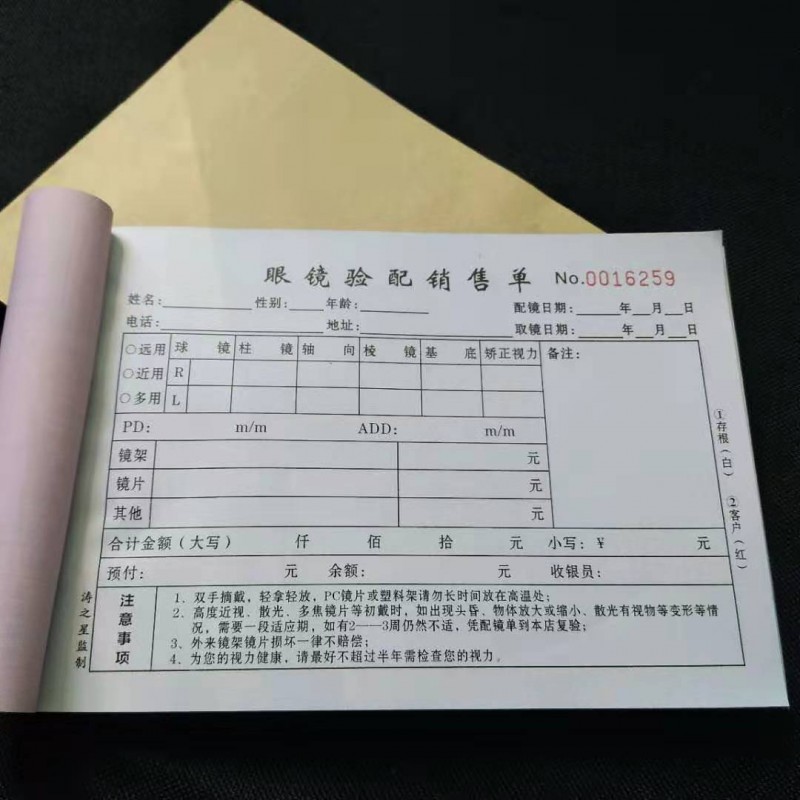 眼镜验配销售单 No.0016259
姓名: 性别: 年龄: 配镜日期: 年 月 日
电话: 地址: 取镜日期: 年 月 日
○远用 球镜 柱镜 轴向 棱镜 基底 矫正视力 备注:
○近用 R
○多用 L
PD: m/m ADD: m/m
镜架 元
镜片 元
其他 元
合计金额(大写) 仟 佰 拾 元 小写:¥ 元
预付: 元 余额: 元 收银员:
注意事项
1、双手摘戴,轻拿轻放,PC镜片或塑料架请勿长时间放在高温处;
2、高度近视、散光、多焦镜片等初戴时,如出现头昏、物体放大或缩小、散光有视物等变形等情
况,需要一段适应期,如有2——3周仍然不适,凭配镜单到本店复验;
3、外来镜架镜片损坏一律不赔偿;
4、为您的视力健康,请最好不超过半年需检查您的视力。
①存根(白) ②客户(红)
涛之星监制